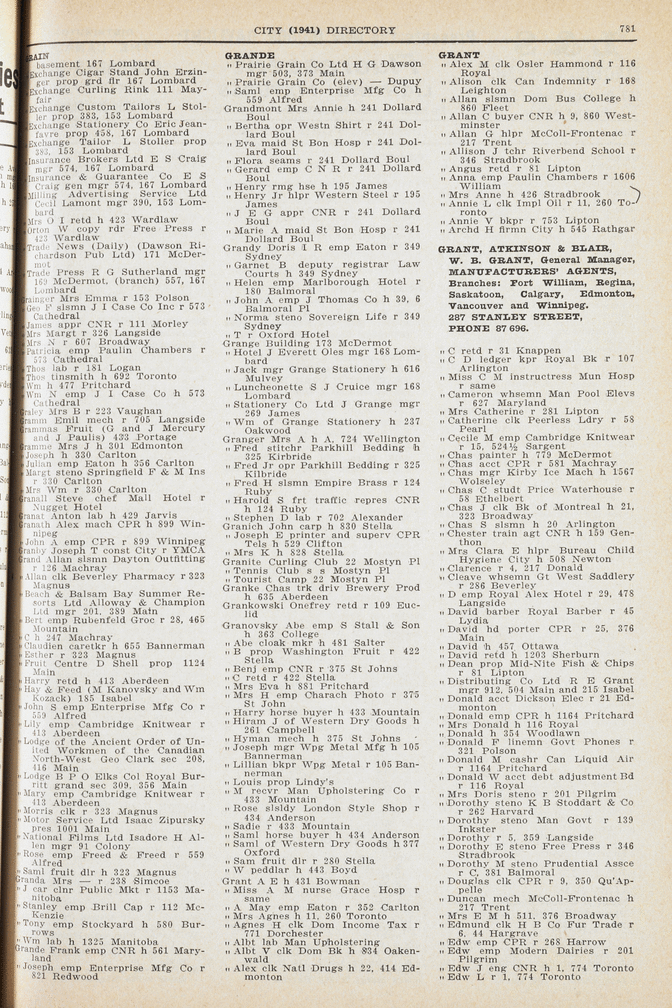 CITY (1941) DIRECTORY 781
RAIN
basement 167 Lombard
Exchange Cigar Stand John Erzin-
ger prop grd flr 167 Lombard
Exchange Curling Rink 111 May-
fair
Exchange Custom Tailors L Stol-
ler prop 383, 153 Lombard
Exchange Stationery Co Eric Jean-
favre prop 458, 167 Lombard
Exchange Tailor L Stoller prop
383, 153 Lombard
Insurance Brokers Ltd E S Craig
mgr 574, 167 Lombard
Insurance & Guarantee Co E S
Craig gen mgr 574, 167 Lombard
Milling Advertising Service Ltd
Cecil Lamont mgr 390, 153 Lom-
bard
Mrs O I retd h 423 Wardlaw
Orton W copy rdr Free Press r
423 Wardlaw
Trade News (Daily) (Dawson Ri-
chardson Pub Ltd) 171 McDer-
mot
Trade Press R G Sutherland mgr
169 McDermot, (branch) 557, 167
Lombard
Grainger Mrs Emma r 153 Polson
Geo F slsmn J I Case Co Inc r 573
Cathedral
James appr CNR r 111 Morley
Mrs Margt r 326 Langside
Mrs N r 607 Broadway
Patricia emp Paulin Chambers r
573 Cathedral
Thos lab r 181 Logan
Thos tinsmith h 692 Toronto
Wm h 477 Pritchard
Wm N emp J I Case Co h 573
Cathedral
Graley Mrs B r 223 Vaughan
Gramm Emil mech r 705 Langside
Grammas Fruit (G and J Mercury
and J Paulis) 433 Portage
Gramme Mrs J h 301 Edmonton
Joseph h 330 Carlton
Julian emp Eaton h 356 Carlton
Margt steno Springfield F & M Ins
r 330 Carlton
Mrs Wm r 330 Carlton
Granall Steve chef Mall Hotel r
Nugget Hotel
Granat Anton lab h 429 Jarvis
Granath Alex mach CPR h 899 Win-
nipeg
John A emp CPR r 899 Winnipeg
Granby Joseph T const City r YMCA
Grand Allan slsmn Dayton Outfitting
r 126 Machray
Allan clk Beverley Pharmacy r 323
Magnus
Beach & Balsam Bay Summer Re-
sorts Ltd Alloway & Champion
Ltd mgr 201, 389 Main
Bert emp Rubenfeld Groc r 28, 465
Mountain
C h 247 Machray
Claudien caretkr h 655 Bannerman
Esther r 323 Magnus
Fruit Centre D Shell prop 1124
Main
Harry retd h 413 Aberdeen
Hay & Feed (M Kanovsky and Wm
Kozack) 185 Isabel
John S emp Enterprise Mfg Co r
559 Alfred
Lily emp Cambridge Knitwear r
413 Aberdeen
Lodge of the Ancient Order of Un-
ited Workmen of the Canadian
North-West Geo Clark sec 208,
416 Main
Lodge B P O Elks Col Royal Bur-
ritt grand sec 309, 356 Main
Mary emp Cambridge Knitwear r
413 Aberdeen
Morris clk r 323 Magnus
Motor Service Ltd Isaac Zipursky
pres 1001 Main
National Films Ltd Isadore H Al-
len mgr 91 Colony
Rose emp Freed & Freed r 559
Alfred
Saml fruit dlr h 323 Magnus
Granda Mrs — r 238 Simcoe
J car clnr Public Mkt r 1153 Ma-
nitoba
Stanley emp Brill Cap r 112 Mc-
Kenzie
Tony emp Stockyard h 580 Bur-
rows
Wm lab h 1325 Manitoba
Grande Frank emp CNR h 561 Mary-
land
" Joseph emp Enterprise Mfg Co r
821 Redwood
GRANDE
" Prairie Grain Co Ltd H G Dawson
mgr 503, 373 Main
" Prairie Grain Co (elev) — Dupuy
" Saml emp Enterprise Mfg Co h
559 Alfred
Grandmont Mrs Annie h 241 Dollard
Boul
" Bertha opr Westn Shirt r 241 Dol-
lard Boul
" Eva maid St Bon Hosp r 241 Dol-
lard Boul
" Flora seams r 241 Dollard Boul
" Gerard emp C N R r 241 Dollard
Boul
" Henry rmg hse h 195 James
" Henry Jr hlpr Western Steel r 195
James
" J E G appr CNR r 241 Dollard
Boul
" Marie A maid St Bon Hosp r 241
Dollard Boul
Grandy Doris I R emp Eaton r 349
Sydney
" Garnet B deputy registrar Law
Courts h 349 Sydney
" Helen emp Marlborough Hotel r
180 Balmoral
" John A emp J Thomas Co h 39, 6
Balmoral Pl
" Norma steno Sovereign Life r 349
Sydney
" T r Oxford Hotel
Grange Building 173 McDermot
" Hotel J Everett Oles mgr 168 Lom-
bard
" Jack mgr Grange Stationery h 616
Mulvey
" Luncheonette S J Cruice mgr 168
Lombard
" Stationery Co Ltd J Grange mgr
269 James
" Wm of Grange Stationery h 237
Oakwood
Granger Mrs A h A, 724 Wellington
" Fred stitchr Parkhill Bedding h
325 Kirbride
" Fred Jr opr Parkhill Bedding r 325
Kilbride
" Fred H slsmn Empire Brass r 124
Ruby
" Harold S frt traffic repres CNR
h 124 Ruby
" Stephen D lab r 702 Alexander
Granich John carp h 830 Stella
" Joseph E printer and superv CPR
Tels h 529 Clifton
" Mrs K h 828 Stella
Granite Curling Club 22 Mostyn Pl
" Tennis Club s s Mostyn Pl
" Tourist Camp 22 Mostyn Pl
Granke Chas trk driv Brewery Prod
h 635 Aberdeen
Grankowski Onefrey retd r 109 Euc-
lid
Granovsky Abe emp S Stall & Son
h 363 College
" Abe cloak mkr h 481 Salter
" B prop Washington Fruit r 422
Stella
" Benj emp CNR r 375 St Johns
" C retd r 422 Stella
" Mrs Eva h 881 Pritchard
" Mrs H emp Charach Photo r 375
St John
" Harry horse buyer h 433 Mountain
" Hiram J of Western Dry Goods h
261 Campbell
" Hyman mech h 375 St Johns
" Joseph mgr Wpg Metal Mfg h 105
Bannerman
" Lillian bkpr Wpg Metal r 105 Ban-
nerman
" Louis prop Lindy's
" M recvr Man Upholstering Co r
433 Mountain
" Rose slsldy London Style Shop r
434 Anderson
" Sadie r 433 Mountain
" Saml horse buyer h 434 Anderson
" Saml of Western Dry Goods h 377
Oxford
" Sam fruit dlr r 280 Stella
" W peddlar h 443 Boyd
Grant A E h 431 Bowman
" Miss A M nurse Grace Hosp r
same
" A May emp Eaton r 352 Carlton
" Mrs Agnes h 11, 260 Toronto
" Agnes H clk Dom Income Tax r
771 Dorchester
" Albt lab Man Upholstering
" Albt V clk Dom Bk h 834 Oaken-
wald
" Alex clk Natl Drugs h 22, 414 Ed-
monton
GRANT
" Alex M clk Osler Hammond r 116
Royal
" Alison clk Can Indemnity r 168
Leighton
" Allan slsmn Dom Bus College h
860 Fleet
" Allan C buyer CNR h 9, 860 West-
minster
" Allan G hlpr McColl-Frontenac r
217 Trent
" Allison J tchr Riverbend School r
346 Stradbrook
" Angus retd r 81 Lipton
" Anna emp Paulin Chambers r 1606
William
" Mrs Anne h 426 Stradbrook
" Annie L clk Impl Oil r 11, 260 To-
ronto
" Annie V bkpr r 753 Lipton
" Archd H firmn City h 545 Rathgar
GRANT, ATKINSON & BLAIR,
W. B. GRANT, General Manager,
MANUFACTURERS' AGENTS,
Branches: Fort William, Regina,
Saskatoon, Calgary, Edmonton,
Vancouver and Winnipeg.
287 STANLEY STREET,
PHONE 87 696.
" C retd r 31 Knappen
" C D ledger kpr Royal Bk r 107
Arlington
" Miss C M instructress Mun Hosp
r same
" Cameron whsemn Man Pool Elevs
r 627 Maryland
" Mrs Catherine r 281 Lipton
" Catherine clk Peerless Ldry r 58
Pearl
" Cecile M emp Cambridge Knitwear
r 15, 524½ Sargent
" Chas painter h 779 McDermot
" Chas acct CPR r 581 Machray
" Chas mgr Kirby Ice Mach h 1567
Wolseley
" Chas C studt Price Waterhouse r
58 Ethelbert
" Chas J clk Bk of Montreal h 21,
323 Broadway
" Chas S slsmn h 20 Arlington
" Chester train agt CNR h 159 Gen-
thon
" Mrs Clara E hlpr Bureau Child
Hygiene City h 508 Newton
" Clarence r 4, 217 Donald
" Cleave whsemn Gt West Saddlery
r 286 Beverley
" D emp Royal Alex Hotel r 29, 478
Langside
" David barber Royal Barber r 45
Lydia
" David hd porter CPR r 25, 376
Main
" David h 457 Ottawa
" David retd h 1203 Sherburn
" Dean prop Mid-Nite Fish & Chips
r 81 Lipton
" Distributing Co Ltd R E Grant
mgr 912, 504 Main and 215 Isabel
" Donald acct Dickson Elec r 21 Ed-
monton
" Donald emp CPR h 1164 Pritchard
" Mrs Donald h 116 Royal
" Donald h 354 Woodlawn
" Donald F linemn Govt Phones r
321 Polson
" Donald M cashr Can Liquid Air
r 1164 Pritchard
" Donald W acct debt adjustment Bd
r 116 Royal
" Mrs Doris steno r 201 Pilgrim
" Dorothy steno K B Stoddart & Co
r 262 Harvard
" Dorothy steno Man Govt r 139
Inkster
" Dorothy r 5, 359 Langside
" Dorothy E steno Free Press r 346
Stradbrook
" Dorothy M steno Prudential Assce
r C, 381 Balmoral
" Douglas clk CPR r 9, 350 Qu'Ap-
pelle
" Duncan mech McColl-Frontenac h
217 Trent
" Mrs E M h 511, 376 Broadway
" Edmund clk H B Co Fur Trade r
6, 44 Hargrave
" Edw emp CPR r 268 Harrow
" Edw emp Modern Dairies r 201
Pilgrim
" Edw J eng CNR h 1, 774 Toronto
" Edw L r 1, 774 Toronto